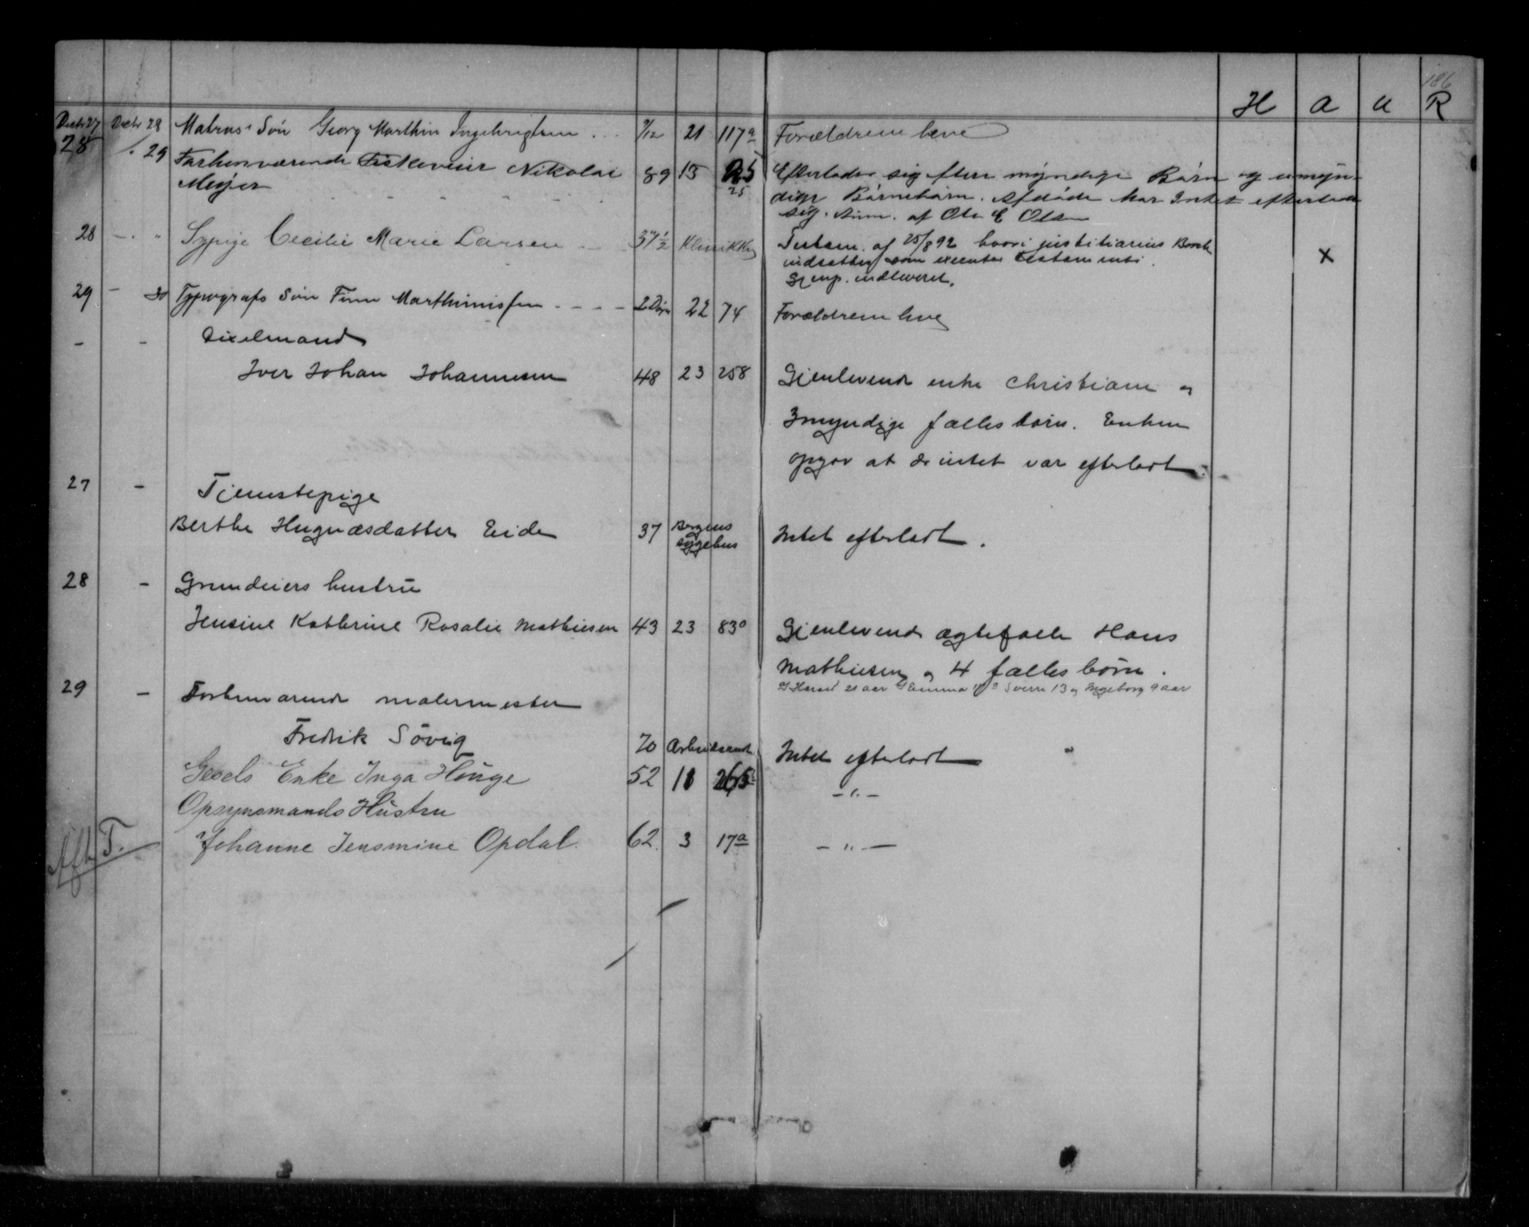 186
H a u R
Decbr 27 Decbr 28 Matros' Sön Georg Marthin Ingebrigtsen 9/12 21 117a Forældrene leve
28 29 Forhenværende Fiskeveier Nikolai 89 15 25 Efterlader sig flere myndige Börn og umyn-
Meyer 25 dige Börnebörn. Afdöde har Intet efterladt
sig. Anm. af Ole E Olsen
28 - " Sypige Cecilie Marie Larsen 37½ Klinikken Testam. af 25/8 92 hvori justitiarius
indsættes som executor testamenti. x
Gjenp. indleveret.
29 - 30 Typografs Sön Finn Marthinissen 2 Dge 22 74 Forældrene leve
- - Sixelmand
Iver Johan Johannesen 48 23 258 Gjenlevende enke Christiane og
3 myndige fælles börn. Enken
opgav at der intet var efterladt
27 - Tjenestepige
Berthe Hugnæsdatter Eide 37 Bergens Sygehus Intet efterladt.
28 - Grundeiers hustru
Jensine Kathrine Rosalie Mathiesen 43 23 83a Gjenlevende ægtefælle Hans
Mathiesen og 4 fælles börn.
Harald 21 aar Emma Sverre 13 og Ingeborg 9 aar
29 - Forhenværende malermester
Fredrik Sövig 70 Arbeidsanst Intet efterladt
Gesels Enke Inga Houge 52 18 265 - " -
Opsynsmands Hustru
Johanne Jensmine Opdal. 62. 3 17a - " -
Afl. T.